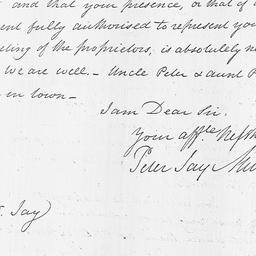 and that your presence, or that of
ent fully authorised to represent you
eting of the proprietors, is absolutely ne
we are well. – Uncle Peter & aunt P
in town –
I am Dear Sir.
Your affte. Neph
Peter Jay Mu
. Jay)